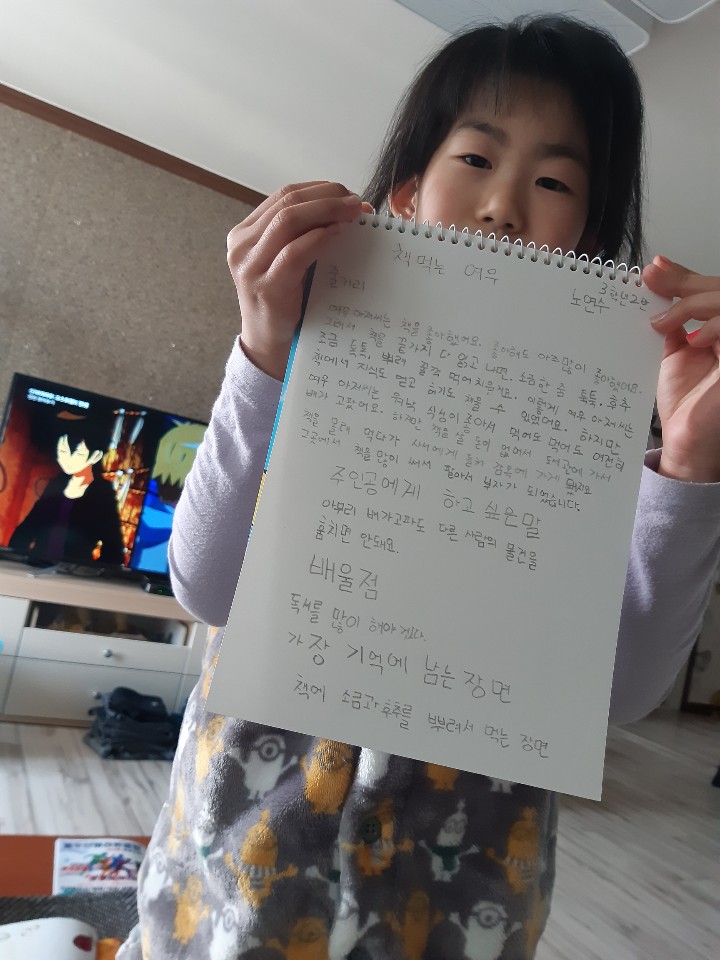 책 먹는 여우
3학년2반
노연수
줄거리
여우 아저씨는 책을 좋아했어요. 좋아해도 아주많이 좋아했어요.
그래서 책을 끝가지 다 읽고 나면, 소금한 줌 톡톡. 후추
조금 톡톡, 뿌려 꿀꺽 먹어치웠지요. 이렇게 여우 아저씨는
책에서 지식도 얻고 허기도 채울 수 있었어요. 하지만
여우 아저씨는 워낙 식성이 좋아서 먹어도 먹어도 여전히
배가 고팠어요. 하지만 책을 살 돈이 없어서 도서관에 가서
책을 몰래 먹다가 사서에게 들켜 감옥에 가게 됐지요
그곳에서 책을 많이 써서 팔아서 부자가 되었습니다.
주인공에게 하고 싶은말
아무리 배가고파도 다른 사람의 물건을
훔치면 안돼요.
배울점
독서를 많이 해야겠다.
가장 기억에 남는장면
책에 소금과후추를 뿌려서 먹는 장면